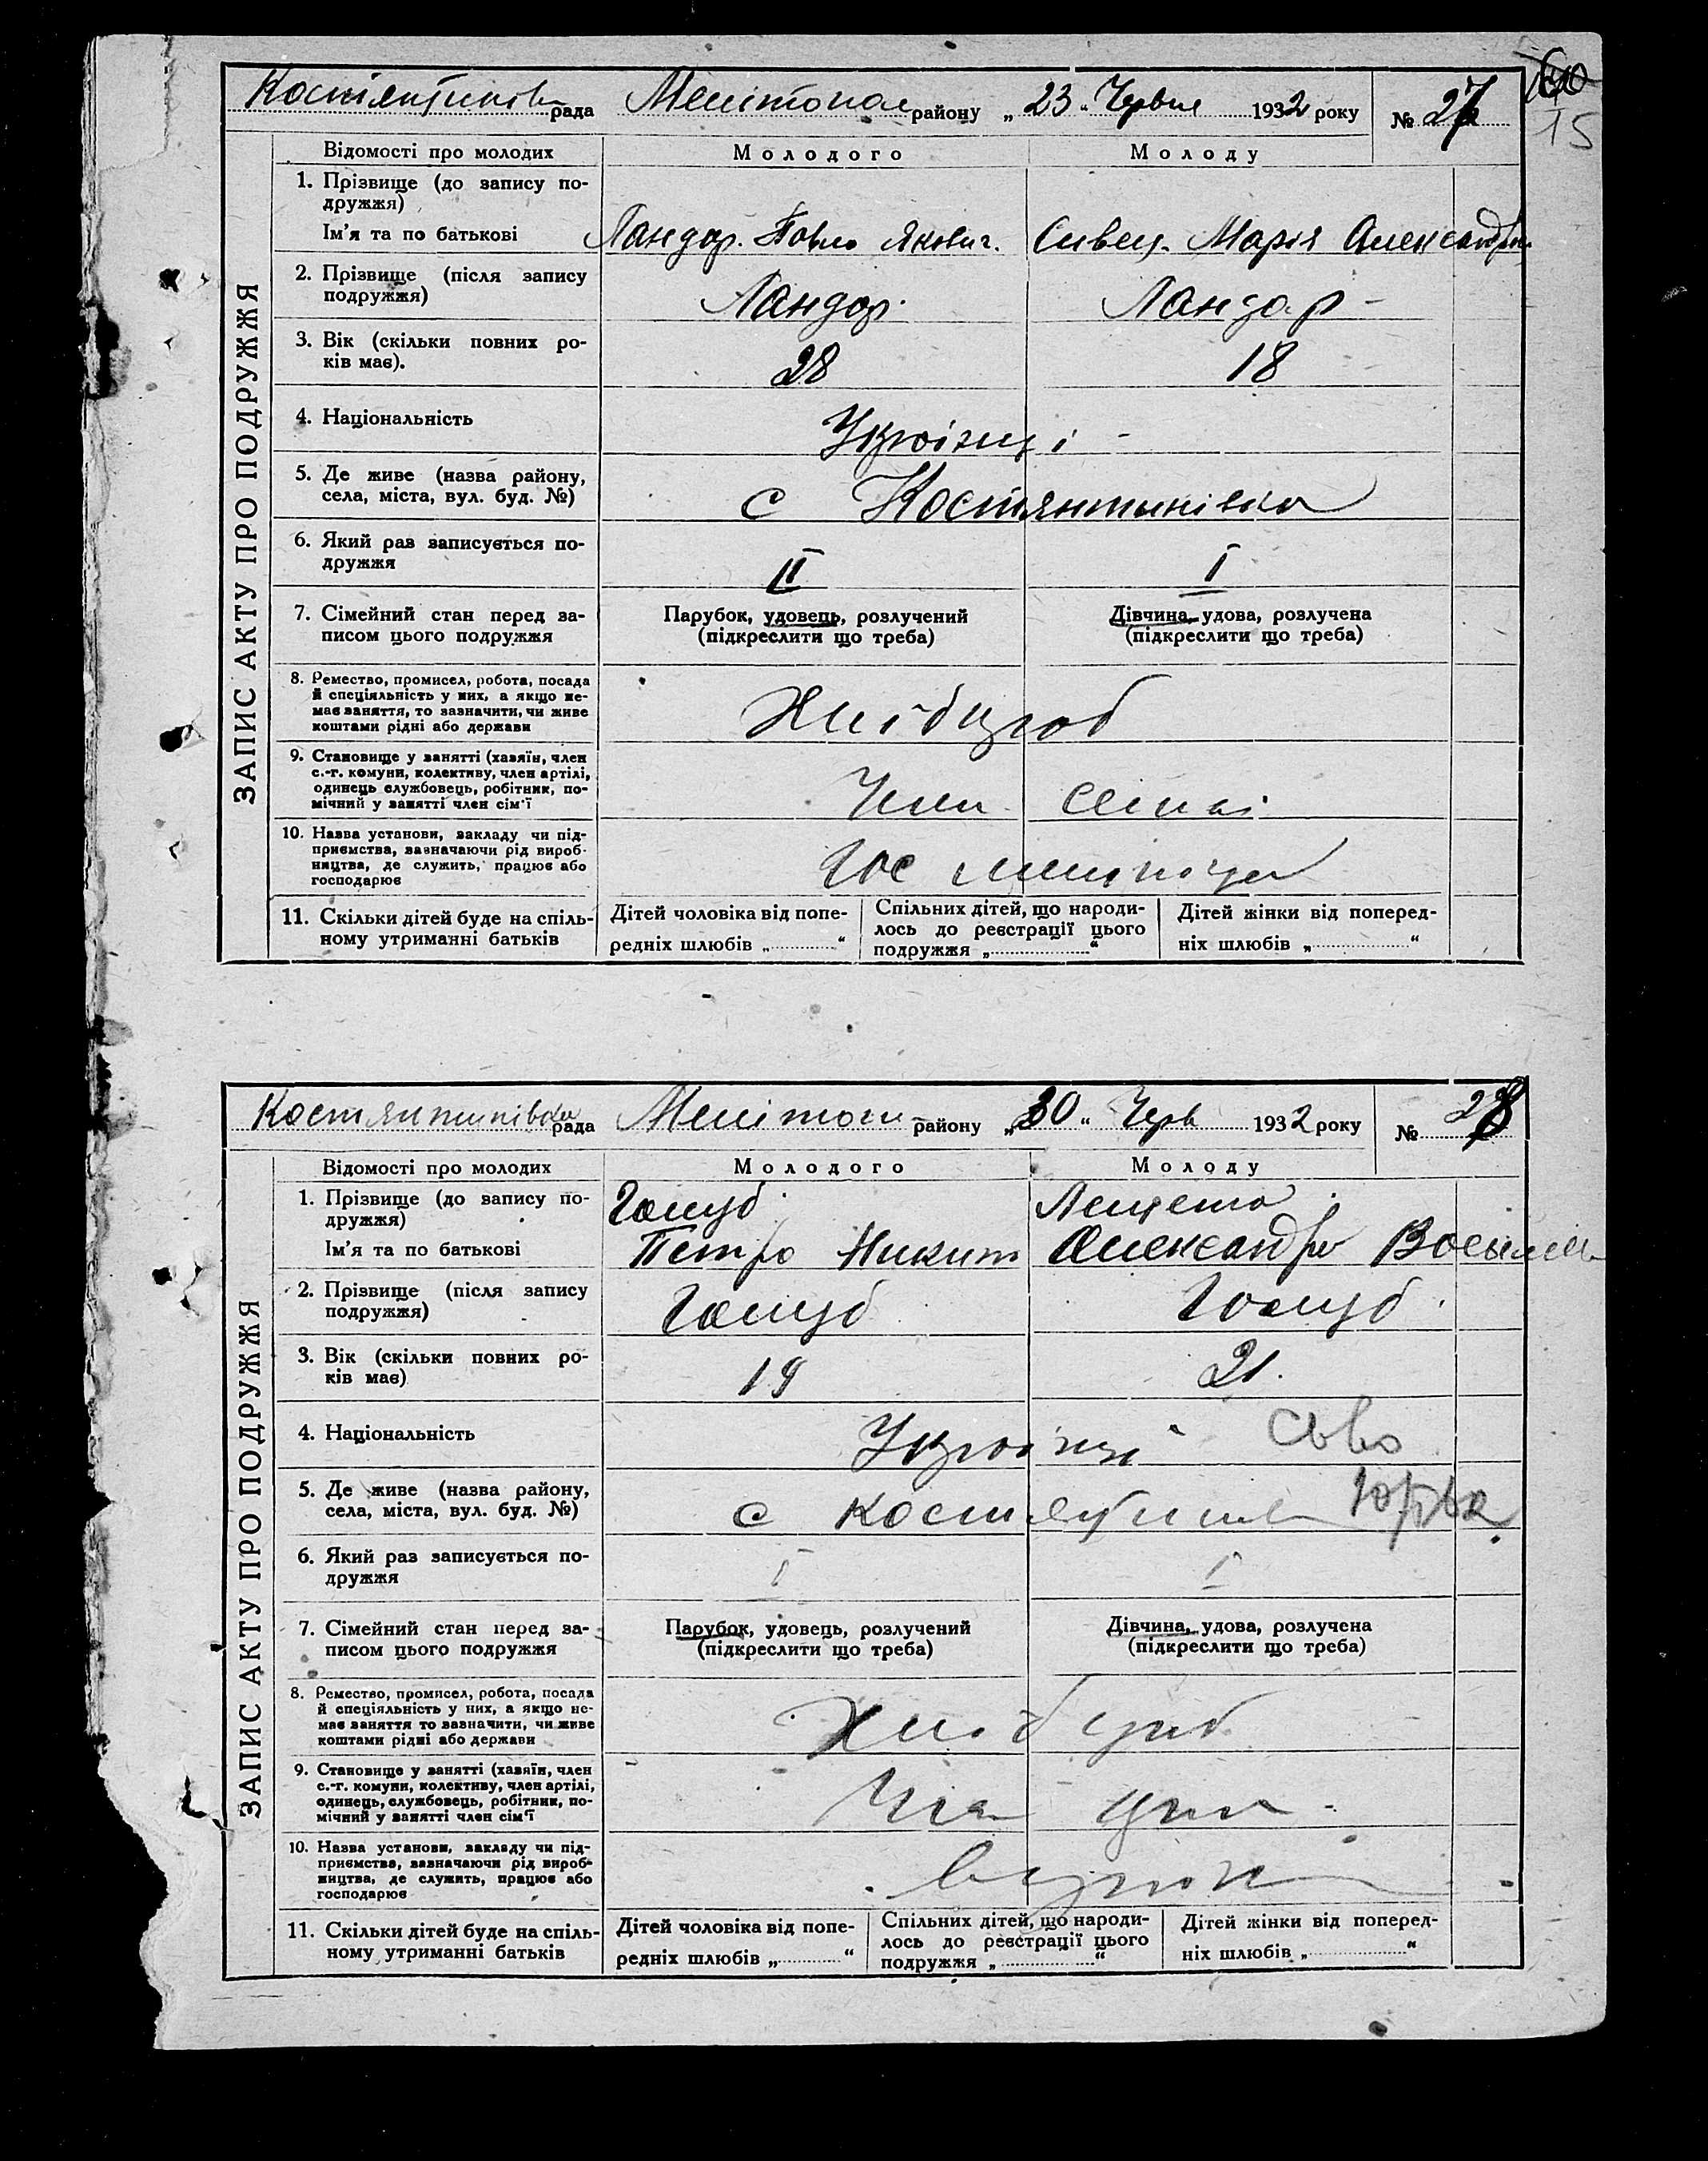 15
Костянтинів рада Мелітопол району „ 23 “ Червня 1932 року № 27
ЗАПИС АКТУ ПРО ПОДРУЖЖЯ
Відомості про молодих Молодого Молоду
1. Прізвище (до запису по-
дружжя)
Ім'я та по батькові Ландар. Павло Якович. Сивец. Марія Александр
2. Прізвище (після запису
подружжя) Ландар Ландар
3. Вік (скільки повних ро-
ків має). 28 18
4. Національність Українці
5. Де живе (назва району,
села, міста, вул. буд. №) с Костянтинівка
6. Який раз записується по-
дружжя II I
7. Сімейний стан перед за-
писом цього подружжя
Парубок, удовець, розлучений
(підкреслити що треба)
Дівчина, удова, розлучена
(підкреслити що треба)
8. Ремество, промисел, робота, посада
й спеціяльність у них, а якщо не-
має заняття, то зазначити, чи живе
коштами рідні або держави
Хлібороб
9. Становище у занятті (хазяїн, член
с.-г. комуни, колективу, член артілі,
одинець службовець, робітник, по-
мічний у занятті член сім'ї
Член
10. Назва установи, закладу чи під-
приємства, зазначаючи рід вироб-
ництва, де служить, працює або
господарює
11. Скільки дітей буде на спіль-
ному утриманні батьків
Дітей чоловіка від попе-
редніх шлюбів „ “
Спільних дітей, що народи-
лось до реєстрації цього
подружжя „ “
Дітей жінки від поперед-
ніх шлюбів „ “
Костянтинівка рада Мелітопол району „ 30 “ Черв 1932 року № 28
ЗАПИС АКТУ ПРО ПОДРУЖЖЯ
Відомості про молодих Молодого Молоду
1. Прізвище (до запису по-
дружжя) Голуб
Ім'я та по батькові Петро Никит Александра Васильев
2. Прізвище (після запису
подружжя) Голуб Голуб
3. Вік (скільки повних ро-
ків має) 19 21.
4. Національність Українці
5. Де живе (назва району,
села, міста, вул. буд. №) с Костянтинів
6. Який раз записується по-
дружжя I I
7. Сімейний стан перед за-
писом цього подружжя
Парубок, удовець, розлучений
(підкреслити що треба)
Дівчина, удова, розлучена
(підкреслити що треба)
8. Ремество, промисел, робота, посада
й спеціяльність у них, а якщо не-
має заняття то зазначити, чи живе
коштами рідні або держави
Хлібороб
9. Становище у занятті (хазяїн, член
с.-г. комуни, колективу, член артілі,
одинець, службовець, робітник, по-
мічний у занятті член сім'ї
10. Назва установи, закладу чи під-
приємства, зазначаючи рід вироб-
ництва, де служить, працює або
господарює
11. Скільки дітей буде на спіль-
ному утриманні батьків
Дітей чоловіка від попе-
редніх шлюбів „ “
Спільних дітей, що народи-
лось до реєстрації цього
подружжя „ “
Дітей жінки від поперед-
ніх шлюбів „ “